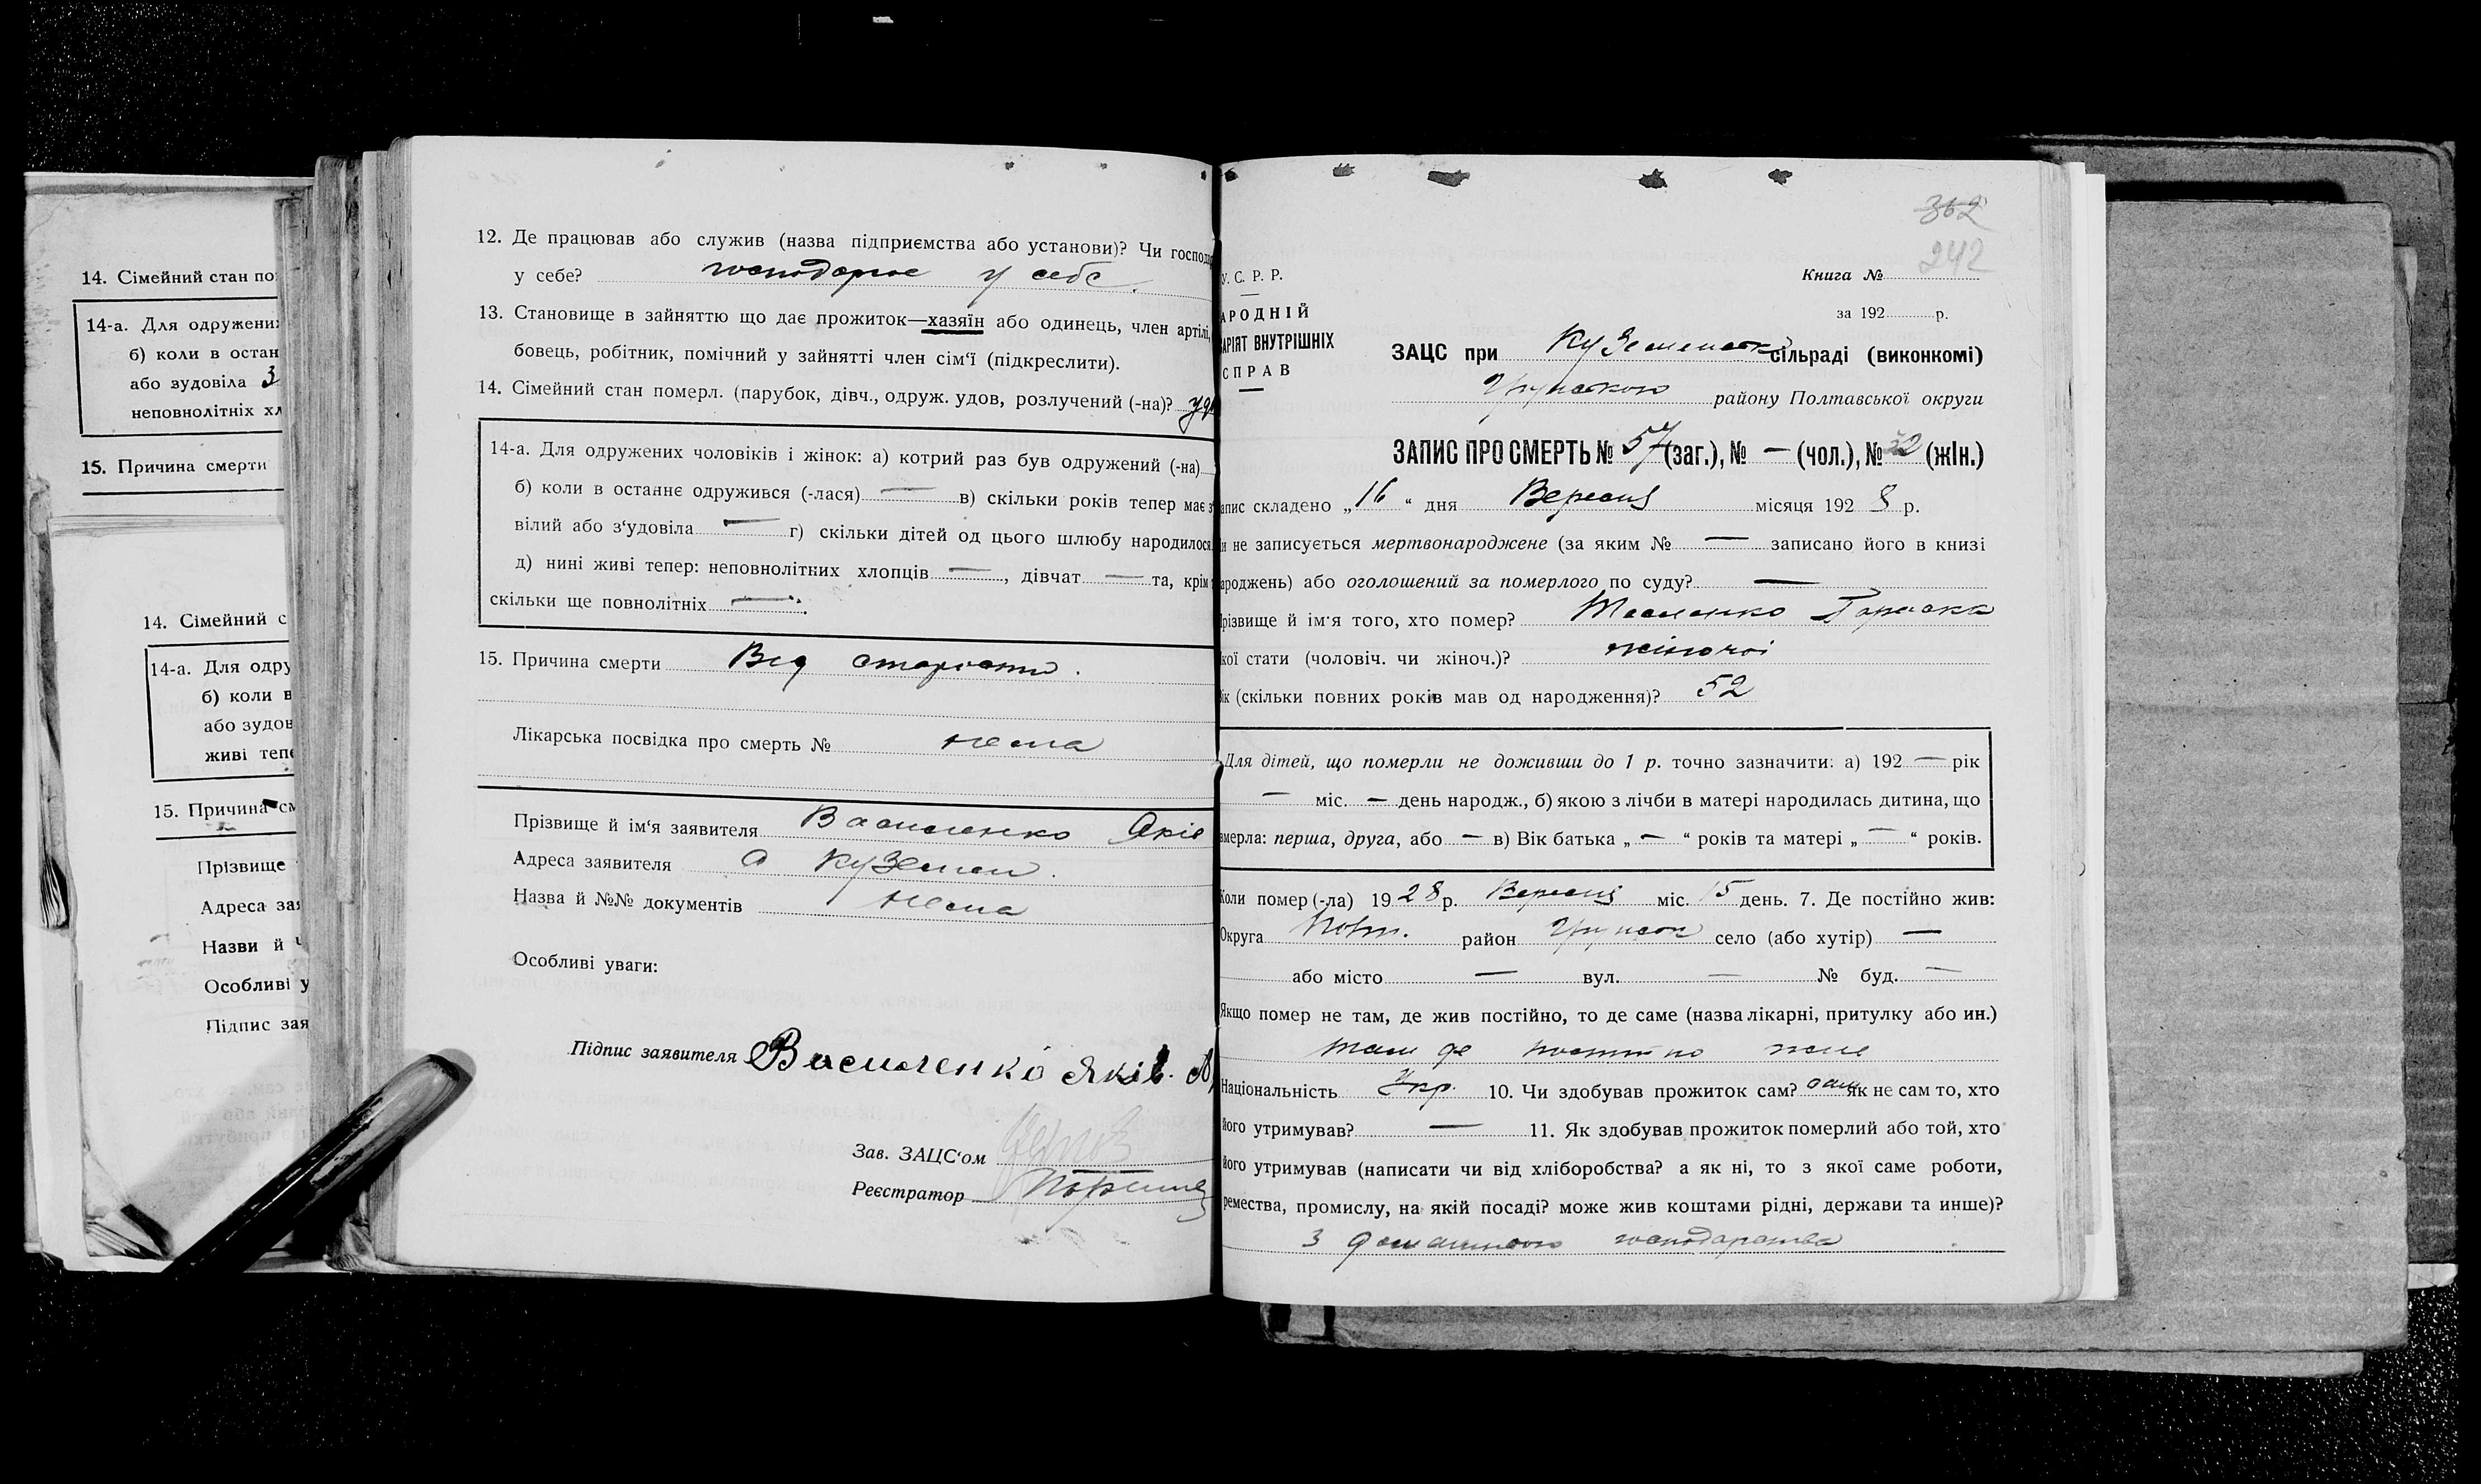 14. Сімейний стан по
14-а. Для одружених
б) коли в остан
або зудовіла З
неповнолітніх хл
15. Причина смерти
14. Сімейний с
14-а. Для одру
б) коли в
або зудов
живі тепе
15. Причина см
Прізвище
Адреса зая
Назви й
Особливі у
Підпис зая
12. Де працював або служив (назва підприємства або установи)? Чи господар
у себе? господарює у себе.
13. Становище в зайняттю що дає прожиток—хазяїн або одинець, член артілі,
бовець, робітник, помічний у зайнятті член сім‘ї (підкреслити).
14. Сімейний стан померл. (парубок, дівч., одруж. удов, розлучений (-на)? уд
14-а. Для одружених чоловіків і жінок: а) котрий раз був одружений (-на)
б) коли в останнє одружився (-лася) — в) скільки років тепер має з
вілий або з‘удовіла — г) скільки дітей од цього шлюбу народилося
д) нині живі тепер: неповнолітних хлопців —, дівчат — та, крім
скільки ще повнолітніх —.
15. Причина смерти Від старости.
Лікарська посвідка про смерть № нема
Прізвище й ім‘я заявителя Василенко Яків
Адреса заявителя с Куземен.
Назва й №№ документів нема
Особливі уваги:
Підпис заявителя Василенко Яків. А
Зав. ЗАЦС‘ом
Реєстратор
362
242
У. С. Р. Р.
АРОДНІЙ
АРІЯТ ВНУТРІШНІХ
СПРАВ
Книга №
за 192 р.
ЗАЦС при Куземенськ сільраді (виконкомі)
Грунського району Полтавської округи
ЗАПИС ПРО СМЕРТЬ № 57 (заг.), № — (чол.), № 32 (жін.)
апис складено „16“ дня Вересня місяця 1928 р.
и не записується мертвонароджене (за яким № — записано його в книзі
ароджень) або оголошений за померлого по суду? —
різвище й ім‘я того, хто помер? Параска
кої стати (чоловіч. чи жіноч.)? жіночої
ік (скільки повних років мав од народження)? 52
Для дітей, що померли не доживши до 1 р. точно зазначити: а) 192 — рік
— міс. — день народж., б) якою з лічби в матері народилась дитина, що
вмерла: перша, друга, або — в) Вік батька „ — “ років та матері „ — “ років.
Коли помер (-ла) 1928 р. Вересня міс. 15 день. 7. Де постійно жив:
Округа Полт. район Грунськ село (або хутір) —
або місто — вул. — № буд. —
Якщо помер не там, де жив постійно, то де саме (назва лікарні, притулку або ин.)
там де постійно жив
Національність Укр. 10. Чи здобував прожиток сам? сам як не сам то, хто
його утримував? — 11. Як здобував прожиток померлий або той, хто
його утримував (написати чи від хліборобства? а як ні, то з якої саме роботи,
ремества, промислу, на якій посаді? може жив коштами рідні, держави та инше)?
З домашнього господарства